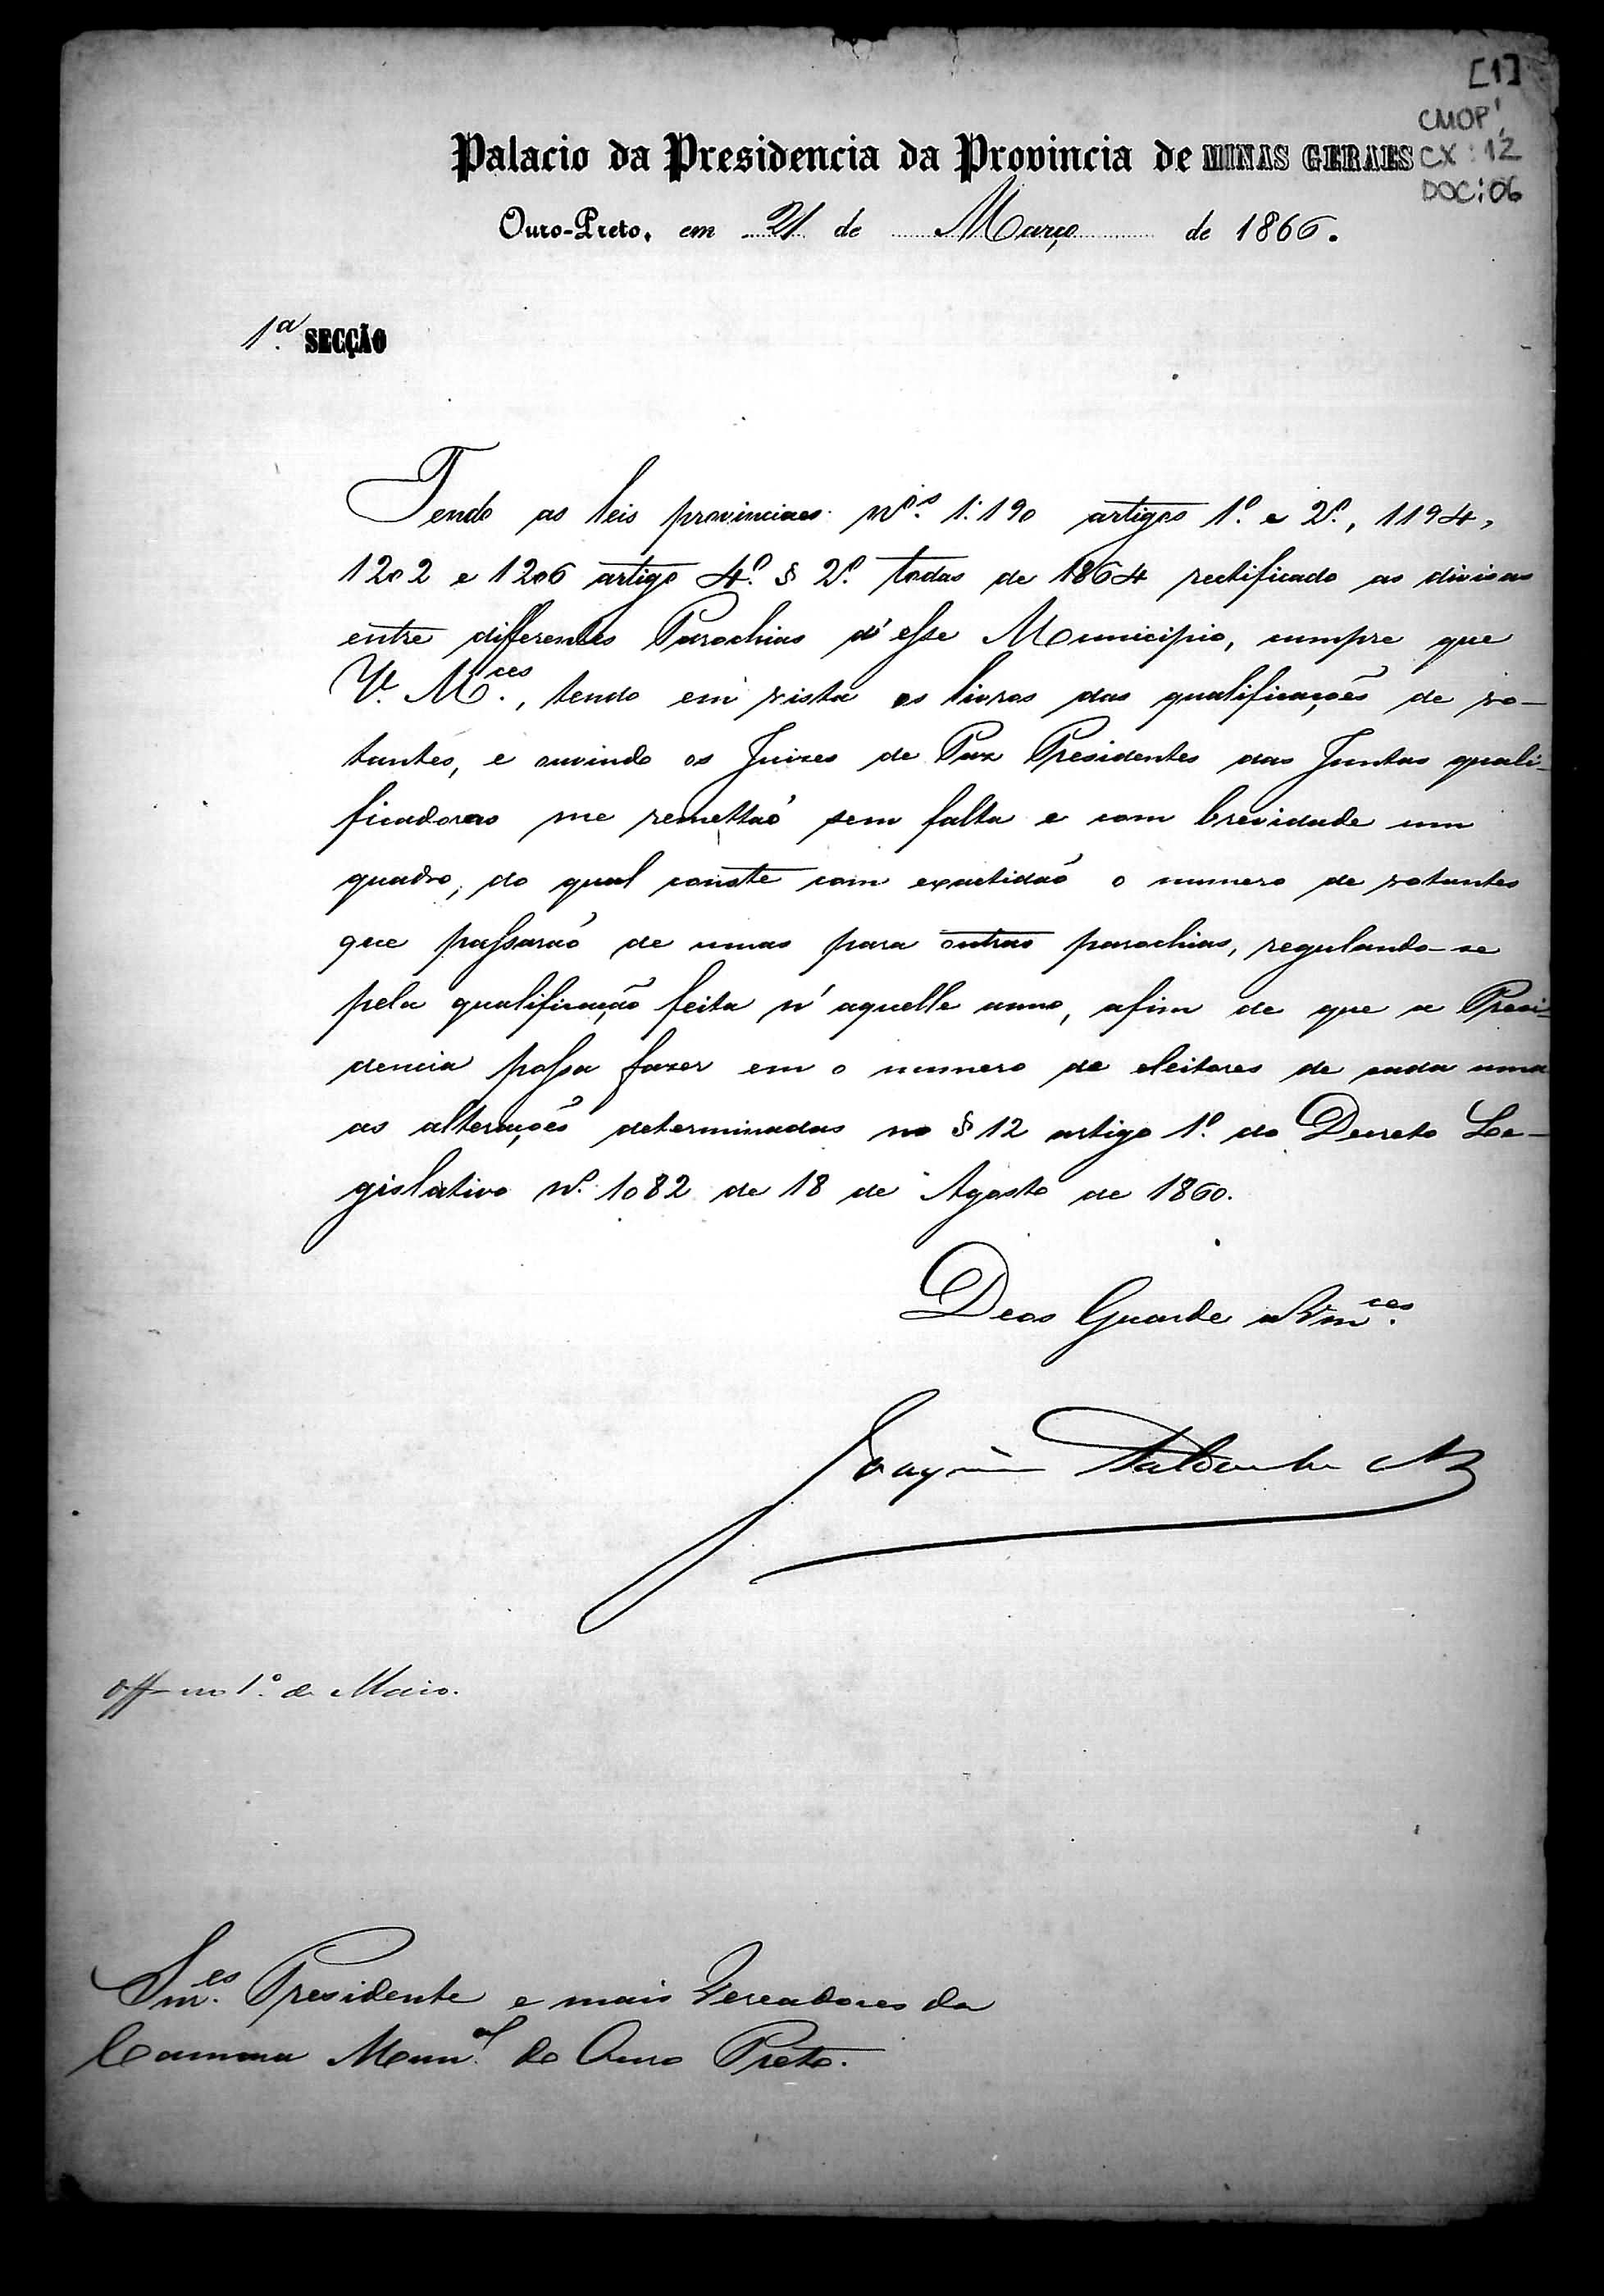 [1]
CMOP
CX: 12
DOC: 06
Palacio da Presidencia da Provincia de MINAS GERAES
Ouro-Preto, em 21 de Março de 1866.
1.ª SECÇÃO
Tendo as leis provinciaes nos. 1:190 artigos 1º. e 2º., 1194,
1202 e 1206 artigo 4º. § 2º. todas de 1864 rectificado as divisas
entre differentes Parochias d'esse Municipio, cumpre que
V. M.ces, tendo em vista os livros das qualificações de vo-
tantes, e ouvindo os Juizes de Paz Presidentes das Juntas quali-
ficadoras me remettaõ sem falta e com brevidade um
quadro, do qual conste com exactidaõ o numero de votantes
que passaraõ de umas para outras parochias, regulando-se
pela qualificação feita n'aquelle anno, afim de que a Presi-
dencia possa fazer em o numero de eleitores de cada uma
as alterações determinadas no § 12 artigo 1º. do Decreto Le-
gislativo nº. 1082 de 18 de Agosto de 1860.
Deos Guarde a Vm.ces
Joaquim Saldanha
Off em 1.º de Maio.
Snr.es Presidente e mais Vereadores da
Camara Mun.al do Ouro Preto.